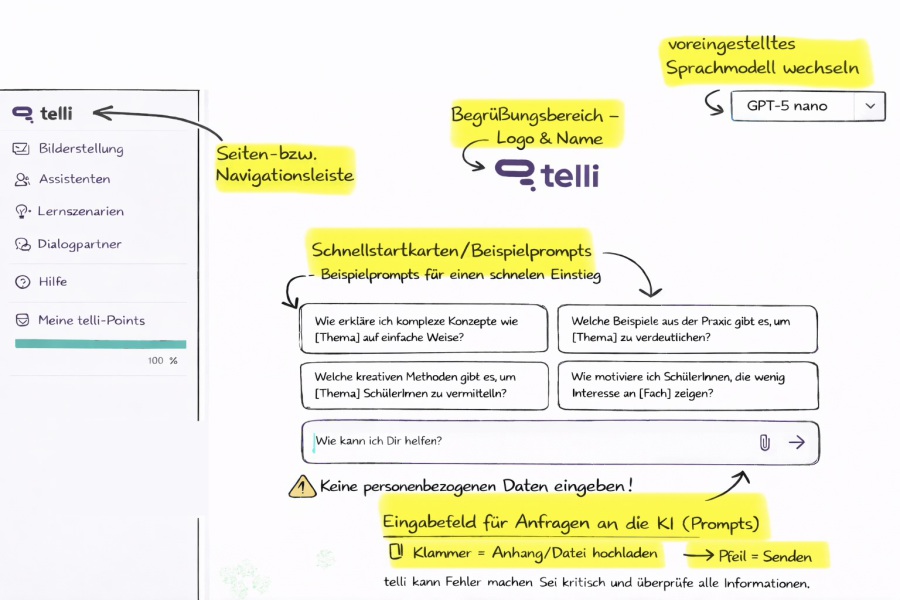 voreingestelltes
Sprachmodell wechseln
GPT-5 nano
telli
Bilderstellung
Assistenten
Lernszenarien
Dialogpartner
Hilfe
Meine telli-Points
100 %
Seiten-bzw.
Navigationsleiste
Begrüßungsbereich –
Logo & Name
telli
Schnellstartkarten/Beispielprompts
- Beispielprompts für einen schnellen Einstieg
Wie erkläre ich kompleze Konzepte wie
[Thema] auf einfache Weise?
Welche Beispiele aus der Praxic gibt es, um
[Thema] zu verdeutlichen?
Welche kreativen Methoden gibt es, um
[Thema] SchülerImen zu vermitteln?
Wie motiviere ich SchülerInnen, die wenig
Interesse an [Fach] zeigen?
Wie kann ich Dir helfen?
Keine personenbezogenen Daten eingeben!
Eingabefeld für Anfragen an die KI (Prompts)
Klammer = Anhang/Datei hochladen
Pfeil = Senden
telli kann Fehler machen Sei kritisch und überprüfe alle Informationen.